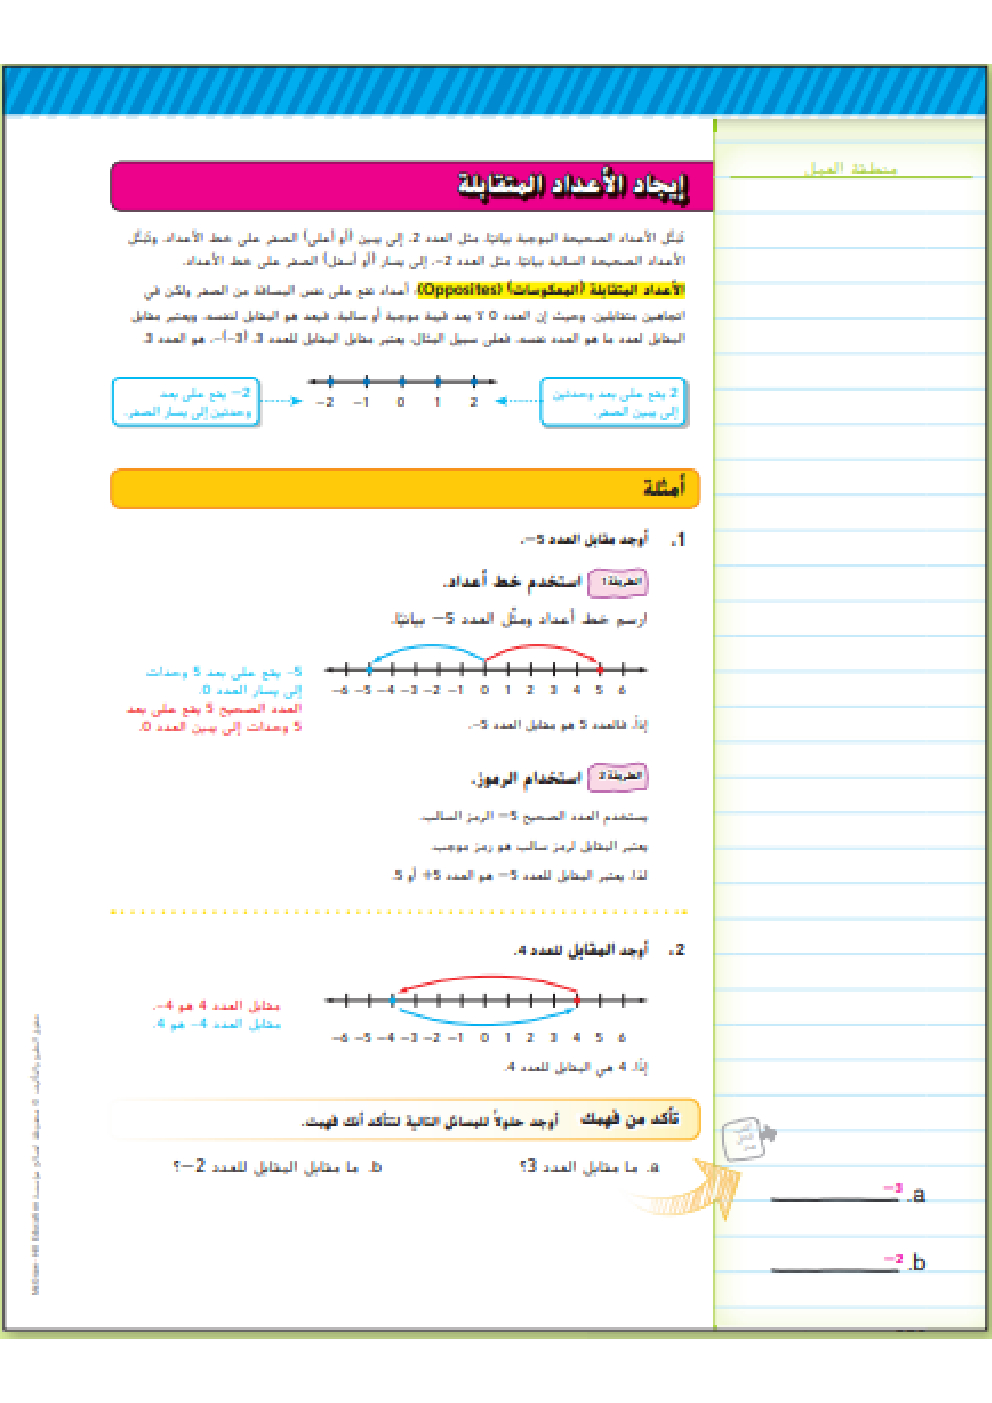 منطقة العمل
إيجاد الأعداد المتقابلة
تُمثَّل الأعداد الصحيحة الموجبة بيانيًا، مثل العدد 2، إلى يمين (أو أعلى) الصفر على خط الأعداد. وتُمثَّل
الأعداد الصحيحة السالبة بيانيًا، مثل العدد 2−، إلى يسار (أو أسفل) الصفر على خط الأعداد.
الأعداد المتقابلة (المعكوسات) (Opposites)، أعداد تقع على نفس المسافة من الصفر ولكن في
اتجاهين متقابلين. وحيث إن العدد 0 لا يعد قيمة موجبة أو سالبة، فيعد هو المقابل لنفسه. ويعتبر مقابل
المقابل لعدد ما هو العدد نفسه. فعلى سبيل المثال، يعتبر مقابل المقابل للعدد 3، (3−)−، هو العدد 3.
2 يقع على بعد وحدتين
إلى يمين الصفر.
−2 −1 0 1 2
2− يقع على بعد
وحدتين إلى يسار الصفر.
أمثلة
1. أوجد مقابل العدد 5−.
الطريقة 1 استخدم خط أعداد.
ارسم خط أعداد ومثّل العدد 5− بيانيًا.
−6 −5 −4 −3 −2 −1 0 1 2 3 4 5 6
5− يقع على بعد 5 وحدات
إلى يسار العدد 0.
العدد الصحيح 5 يقع على بعد
5 وحدات إلى يمين العدد 0.
إذًا، فالعدد 5 هو مقابل العدد 5−.
الطريقة 2 استخدام الرموز.
يستخدم العدد الصحيح 5− الرمز السالب.
يعتبر المقابل لرمز سالب هو رمز موجب.
لذا، يعتبر المقابل للعدد 5− هو العدد 5+ أو 5.
2. أوجد المقابل للعدد 4.
−6 −5 −4 −3 −2 −1 0 1 2 3 4 5 6
مقابل العدد 4 هو 4−.
مقابل العدد 4− هو 4.
إذًا، 4 هي المقابل للعدد 4.
تأكد من فهمك أوجد حلولاً للمسائل التالية لتتأكد أنك فهمت.
a. ما مقابل العدد 3؟
b. ما مقابل المقابل للعدد 2−؟
a. −3
b. −2